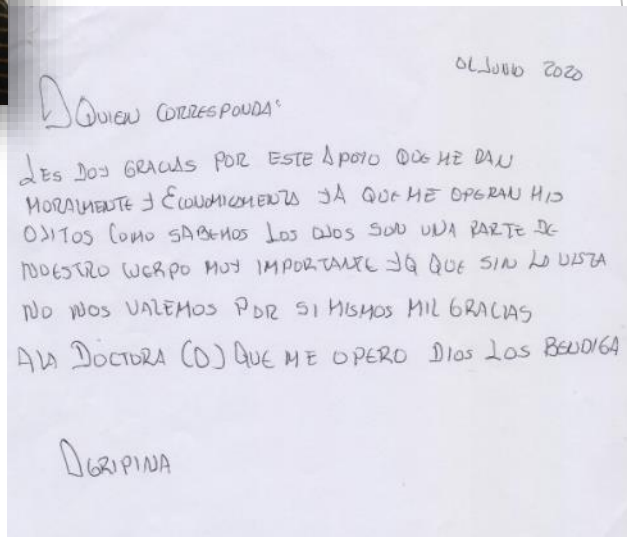 01 Junio 2020
A Quien Corresponda:
Les Doy Gracias por este Apoyo que me dan
moralmente y Economicamente ya que me operan mis
ojitos Como sabemos los ojos son una parte de
nuestro cuerpo muy importante ya que sin la vista
no nos valemos por si mismos mil gracias
a la Doctora (o) que me opero Dios los bendiga
Agripina